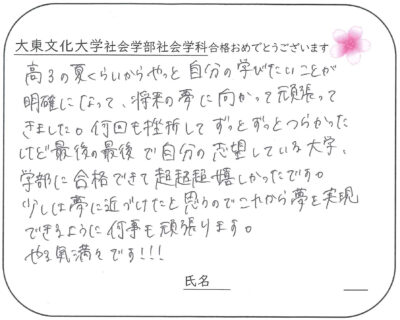 大東文化大学社会学部社会学科合格おめでとうございます
高3の夏くらいからやっと自分の学びたいことが
明確になって、将来の夢に向かって頑張って
きました。何回も挫折してずっとずっとつらかった
けど最後の最後で自分の志望している大学、
学部に合格できて超超超嬉しかったです。
少しは夢に近づけたと思うのでこれから夢を実現
できるように何事も頑張ります。
やる気満々です!!!
氏名